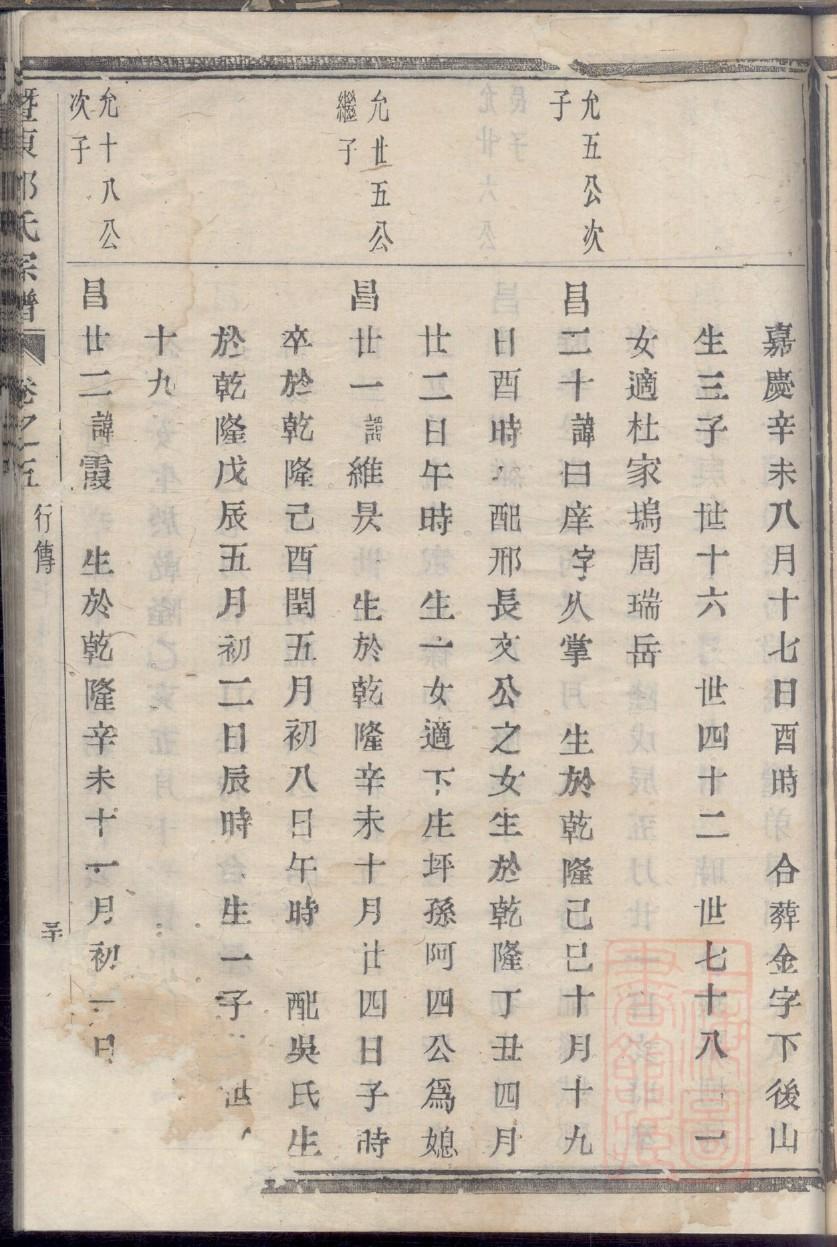 嘉慶辛未八月十七日酉時 合葬金字下後山
生三子 世十六 世四十二 世七十八 一
女適杜家塢周瑞岳
允五公次
子
昌二十諱曰庠字人掌 生於乾隆己巳十月十九
日酉時 配邢長文公之女生於乾隆丁丑四月
廿二日午時 生一女適下庄坪孫阿四公爲媳
允廿五公
繼子
昌廿一諱維昃 生於乾隆辛未十月廿四日子時
卒於乾隆己酉閏五月初八日午時 配吳氏生
於乾隆戊辰五月初二日辰時 生一子 世
十九
允十八公
次子
昌廿二諱霞 生於乾隆辛未十一月初一日
暨東 氏宗譜 卷之五 行傳